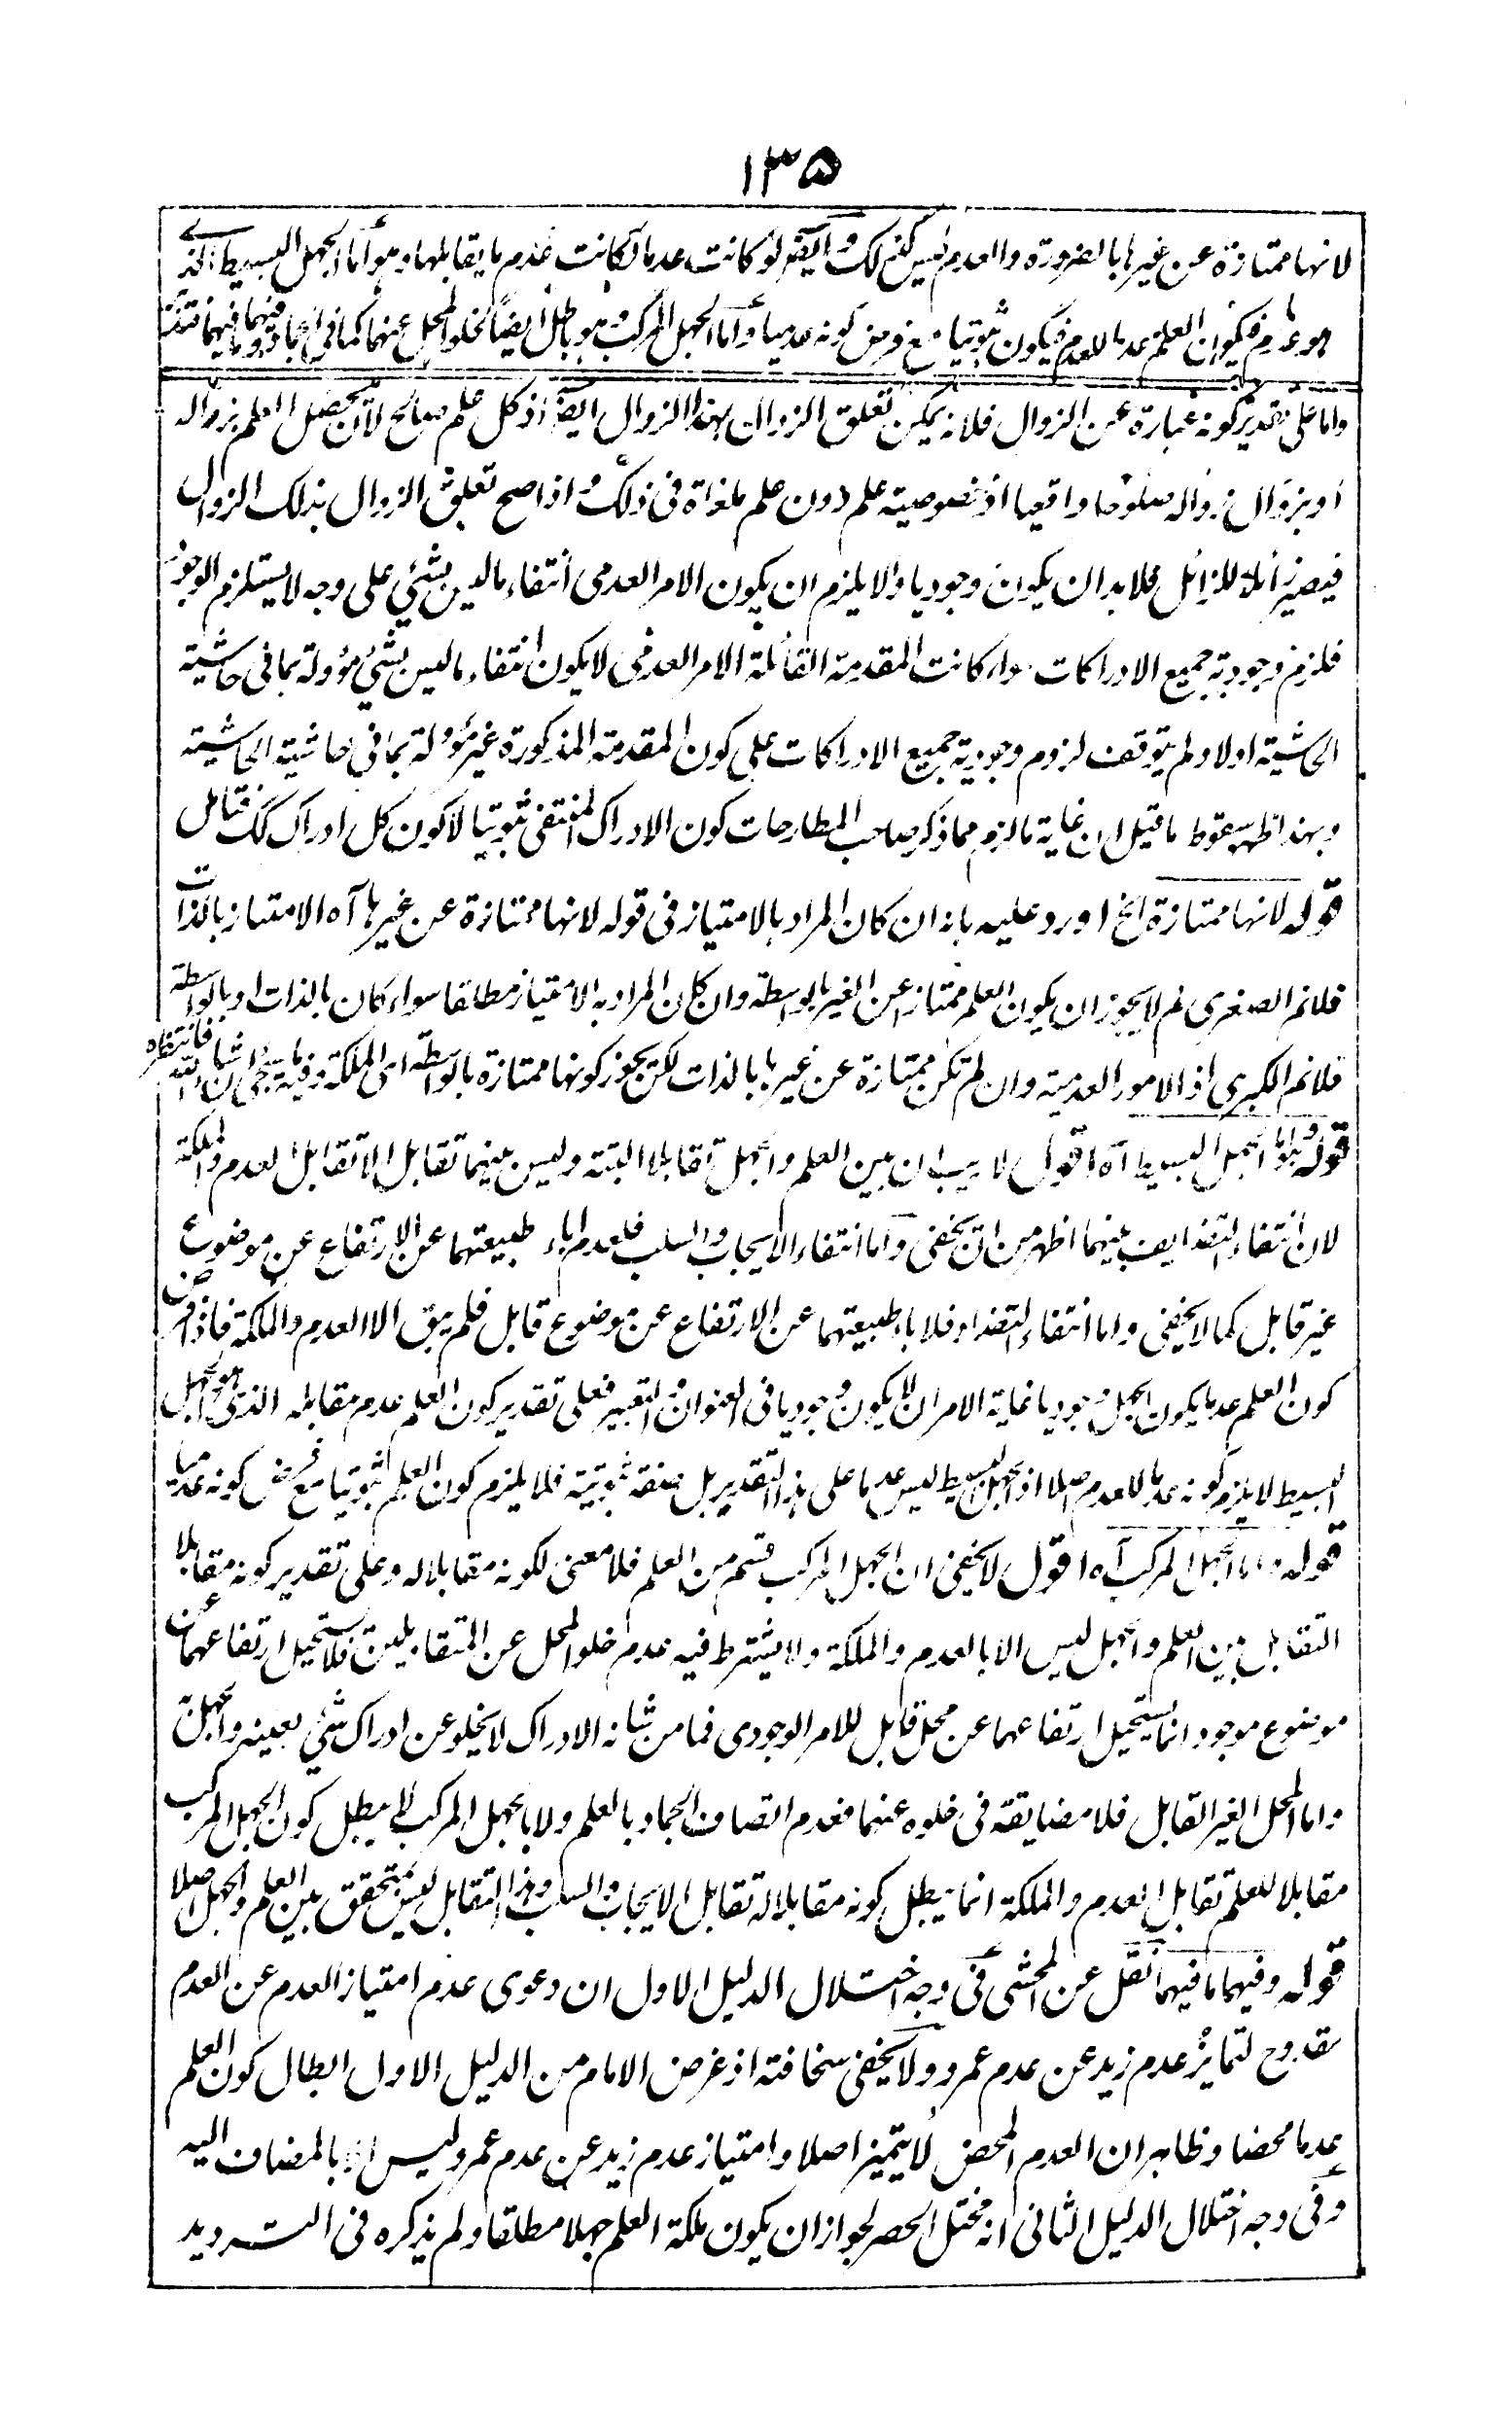 ١٣٥
لانها ممتازة عن غيرها بالضرورة والعدم ليس كذلك وايضا لو كانت عدما لكانت عدم ما يقابلها وهو أما الجهل البسيط الذى
هو عدم فيكون العلم عدما للعدم فيكون ثبوتيا مع فرض كونه عدميا وأما الجهل المركب وهو باطل ايضاً لخلو المحل عنهما كما فى الجماد وفيهما ما فيهما
واما على تقدير كونه عبارة عن الزوال فلانه يمكن تعلق الزوال بهذا الزوال ايضا اذ كل علم صالح لان يحصل العلم بزواله
او بزوال زواله صلوحا واقعيا اذ خصوصية علم دون علم ملغاة فى ذلك واذا صح تعلق الزوال بذلك الزوال
فيصير زائلا للزائل فلا بد ان يكون وجوديا والا يلزم ان يكون الامر العدمى انتفاء ما ليس بشئ على وجه لا يستلزم الوجود
فلزم وجودية جميع الادراكات سواء كانت المقدمة القائلة الامر العدمى لا يكون انتفاء ما ليس بشئ مؤولة بما فى حاشية
الحاشية اولا ولم يتوقف لزوم وجودية جميع الادراكات على كون المقدمة المذكورة غير مؤولة بما فى حاشية الحاشية
وبهذا ظهر سقوط ما قيل ان غاية ما لزم مما ذكر صاحب المطارحات كون الادراك المنتفى ثبوتيا لا كون كل ادراك كك فتأمل
قوله لانها ممتازة الخ اورد عليه بانه ان كان المراد بالامتياز فى قوله لانها ممتازة عن غيرها آه الامتياز بالذات
فلانم الصغرى لم لا يجوز ان يكون العلم ممتازا عن الغير بالواسطة وان كان المراد به الامتياز مطلقا سواء كان بالذات او بالواسطة
فلانم الكبرى اذ الامور العدمية وان لم تكن ممتازة عن غيرها بالذات لكن يجوز كونها ممتازة بالواسطة اى الملكة وفيه ما سيجئ ان شاء الله فانتظره
قوله وهو اما الجهل البسيط آه اقول لا ريب ان بين العلم والجهل تقابلا البتة وليس بينهما تقابل الا تقابل العدم والملكة
لان انتفاء التضايف بينهما اظهر من ان يخفى واما انتفاء الايجاب والسلب فلعدم اباء طبيعتهما عن الارتفاع عن موضوع
غير قابل كما لا يخفى واما انتفاء التضاد فلاباء طبيعتهما عن الارتفاع عن موضوع قابل فلم يبق الا العدم والملكة فاذا فرض
كون العلم عدما يكون الجهل وجوديا غاية الامر ان لا يكون وجوديا فى العنوان والتعبير فعلى تقدير كون العلم عدم مقابله الذى هو الجهل
البسيط لا يلزم كونه عدما للعدم اصلا اذ الجهل البسيط ليس عدما على هذا التقدير بل صفة ثبوتية فلا يلزم كون العلم ثبوتيا مع فرض كونه عدميا
قوله واما الجهل المركب آه اقول لا يخفى ان الجهل المركب قسم من العلم فلا معنى لكونه مقابلا له وعلى تقدير كونه مقابلا
التقابل بين العلم والجهل ليس الا بالعدم والملكة ولا يشترط فيه عدم خلو المحل عن المتقابلين فلا يستحيل ارتفاعهما عن
موضوع موجود انما يستحيل ارتفاعهما عن محل قابل للامر الوجودى فما من شانه الادراك لا يخلو عن ادراك شئ بعينه والجهل به
واما المحل الغير القابل فلا مضايقة فى خلوه عنهما فعدم اتصاف الجماد بالعلم ولا بالجهل المركب لا يبطل كون الجهل المركب
مقابلا للعلم تقابل العدم والملكة انما يبطل كونه مقابلا له تقابل الايجاب والسلب وهذا التقابل ليس متحقق بين العلم والجهل اصلا
قوله وفيهما ما فيهما نقل عن المحشى فى وجه اختلال الدليل الاول ان دعوى عدم امتياز العدم عن العدم
مقدوح لتمايز عدم زيد عن عدم عمرو ولا يخفى سخافته اذ غرض الامام من الدليل الاول ابطال كون العلم
عدما محضا وظاهر ان العدم المحض لا يتميز اصلا وامتياز عدم زيد عن عدم عمرو ليس الا بالمضاف اليه
وفى وجه اختلال الدليل الثانى انه مختل الحصر لجواز ان يكون ملكة العلم جهلا مطلقا ولم يذكره فى الترديد